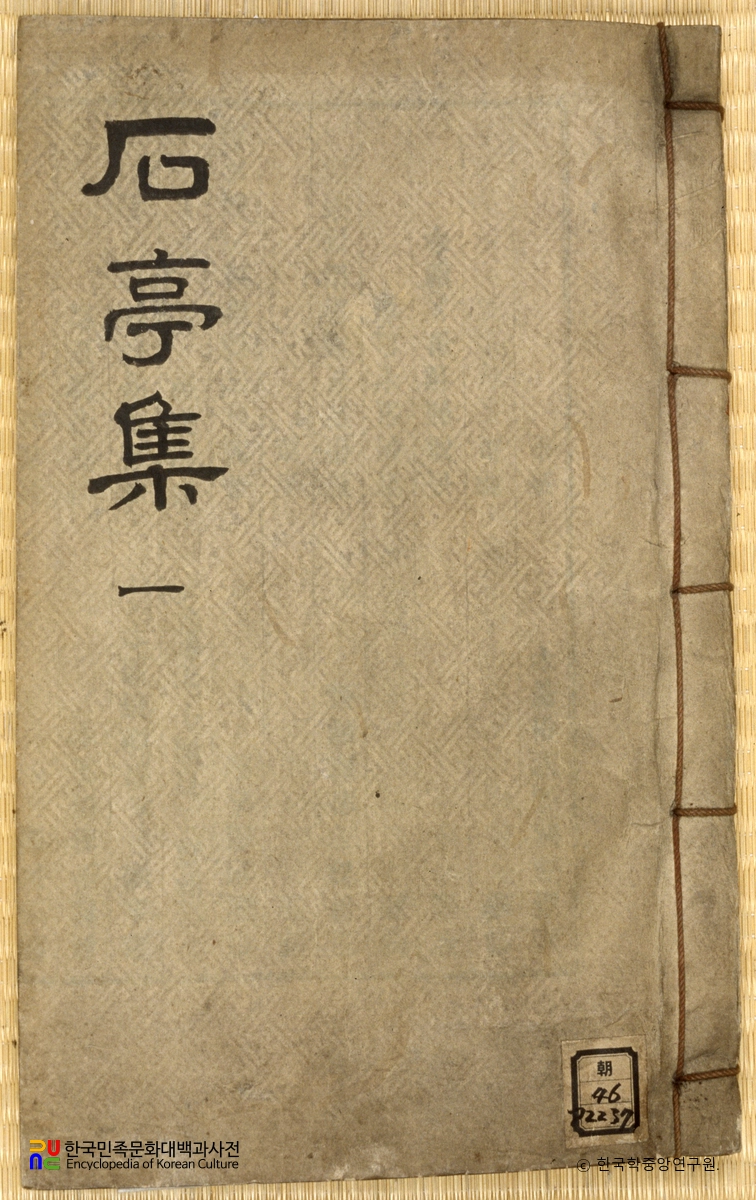 石亭集 一
朝
46
한국민족문화대백과사전
Encyclopedia of Korean Culture
ⓒ 한국학중앙연구원.